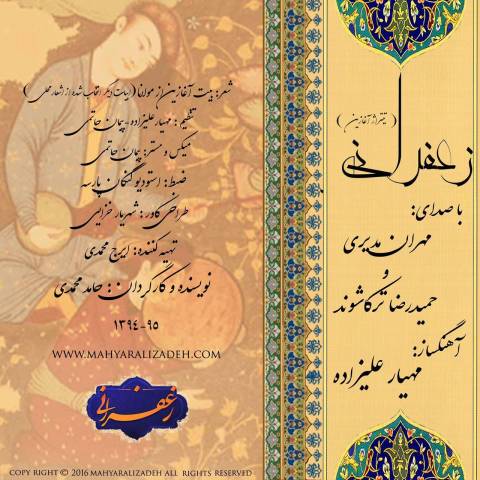 (تیتراژ آغازین)
زعفرانی
با صدای:
مهران مدیری
و
حمیدرضا ترکاشوند
آهنگساز:
مهیار علیزاده
شعر: بیت آغازین از مولانا (ابیات دیگر انتخاب شده از اشعار محلی)
تنظیم: مهیار علیزاده-پیمان حاتمی
میکس و مستر: پیمان حاتمی
ضبط: استودیو کنگان پارسه
طراحی کاور: شهریار خزایی
تهیه کننده: ایرج محمدی
نویسنده و کارگردان: حامد محمدی
۱۳۹۴-۹۵
WWW.MAHYARALIZADEH.COM
زعفرانی
COPY RIGHT © 2016 MAHYARALIZADEH ALL RIGHTS RESERVED